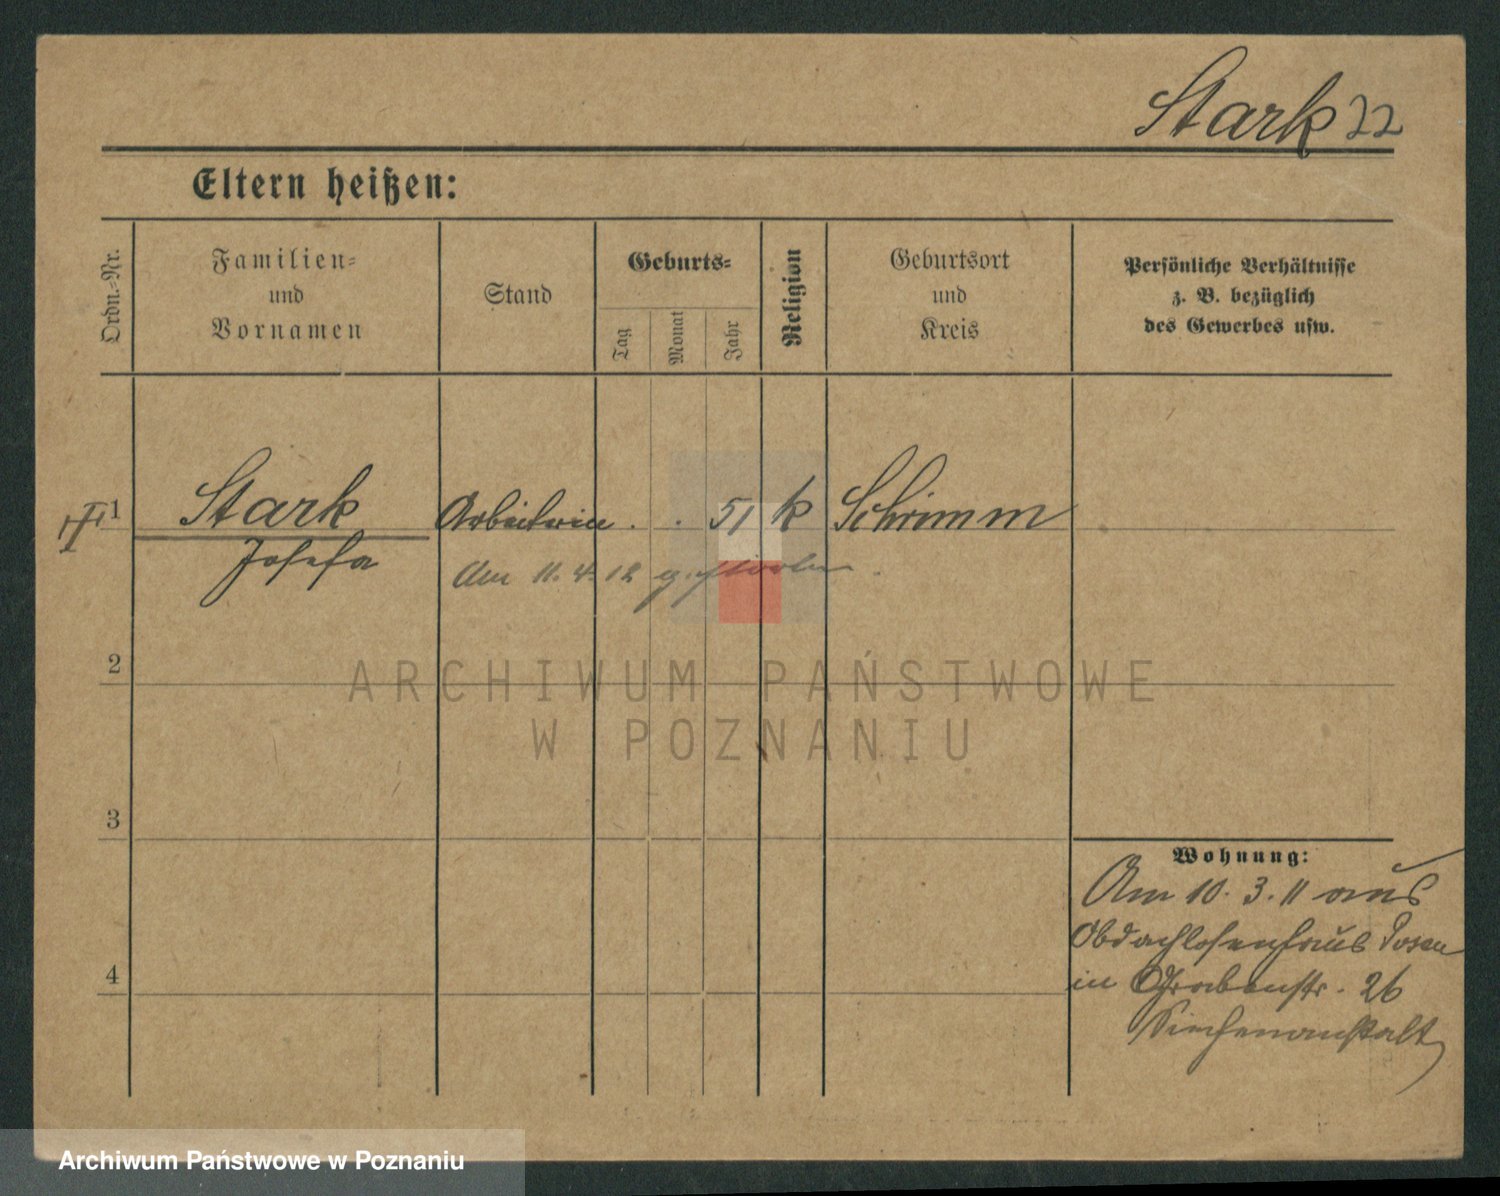 Stark 22
Eltern heißen:
Ordn.-Nr.
Familien-
und
Vornamen
Stand
Geburts-
Tag
Monat
Jahr
Religion
Geburtsort
und
Kreis
Persönliche Verhältnisse
z. B. bezüglich
des Gewerbes usw.
1 Stark Arbeiterin . . 51 k Schrimm
Josefa Am 11.4.12 gestorben.
ARCHIWUM PAŃSTWOWE
W POZNANIU
2
3
4
Wohnung:
Am 10.3.11 aus
Obdachlosenhaus Posen
in Grabenstr. 26
Siechenanstalt
Archiwum Państwowe w Poznaniu